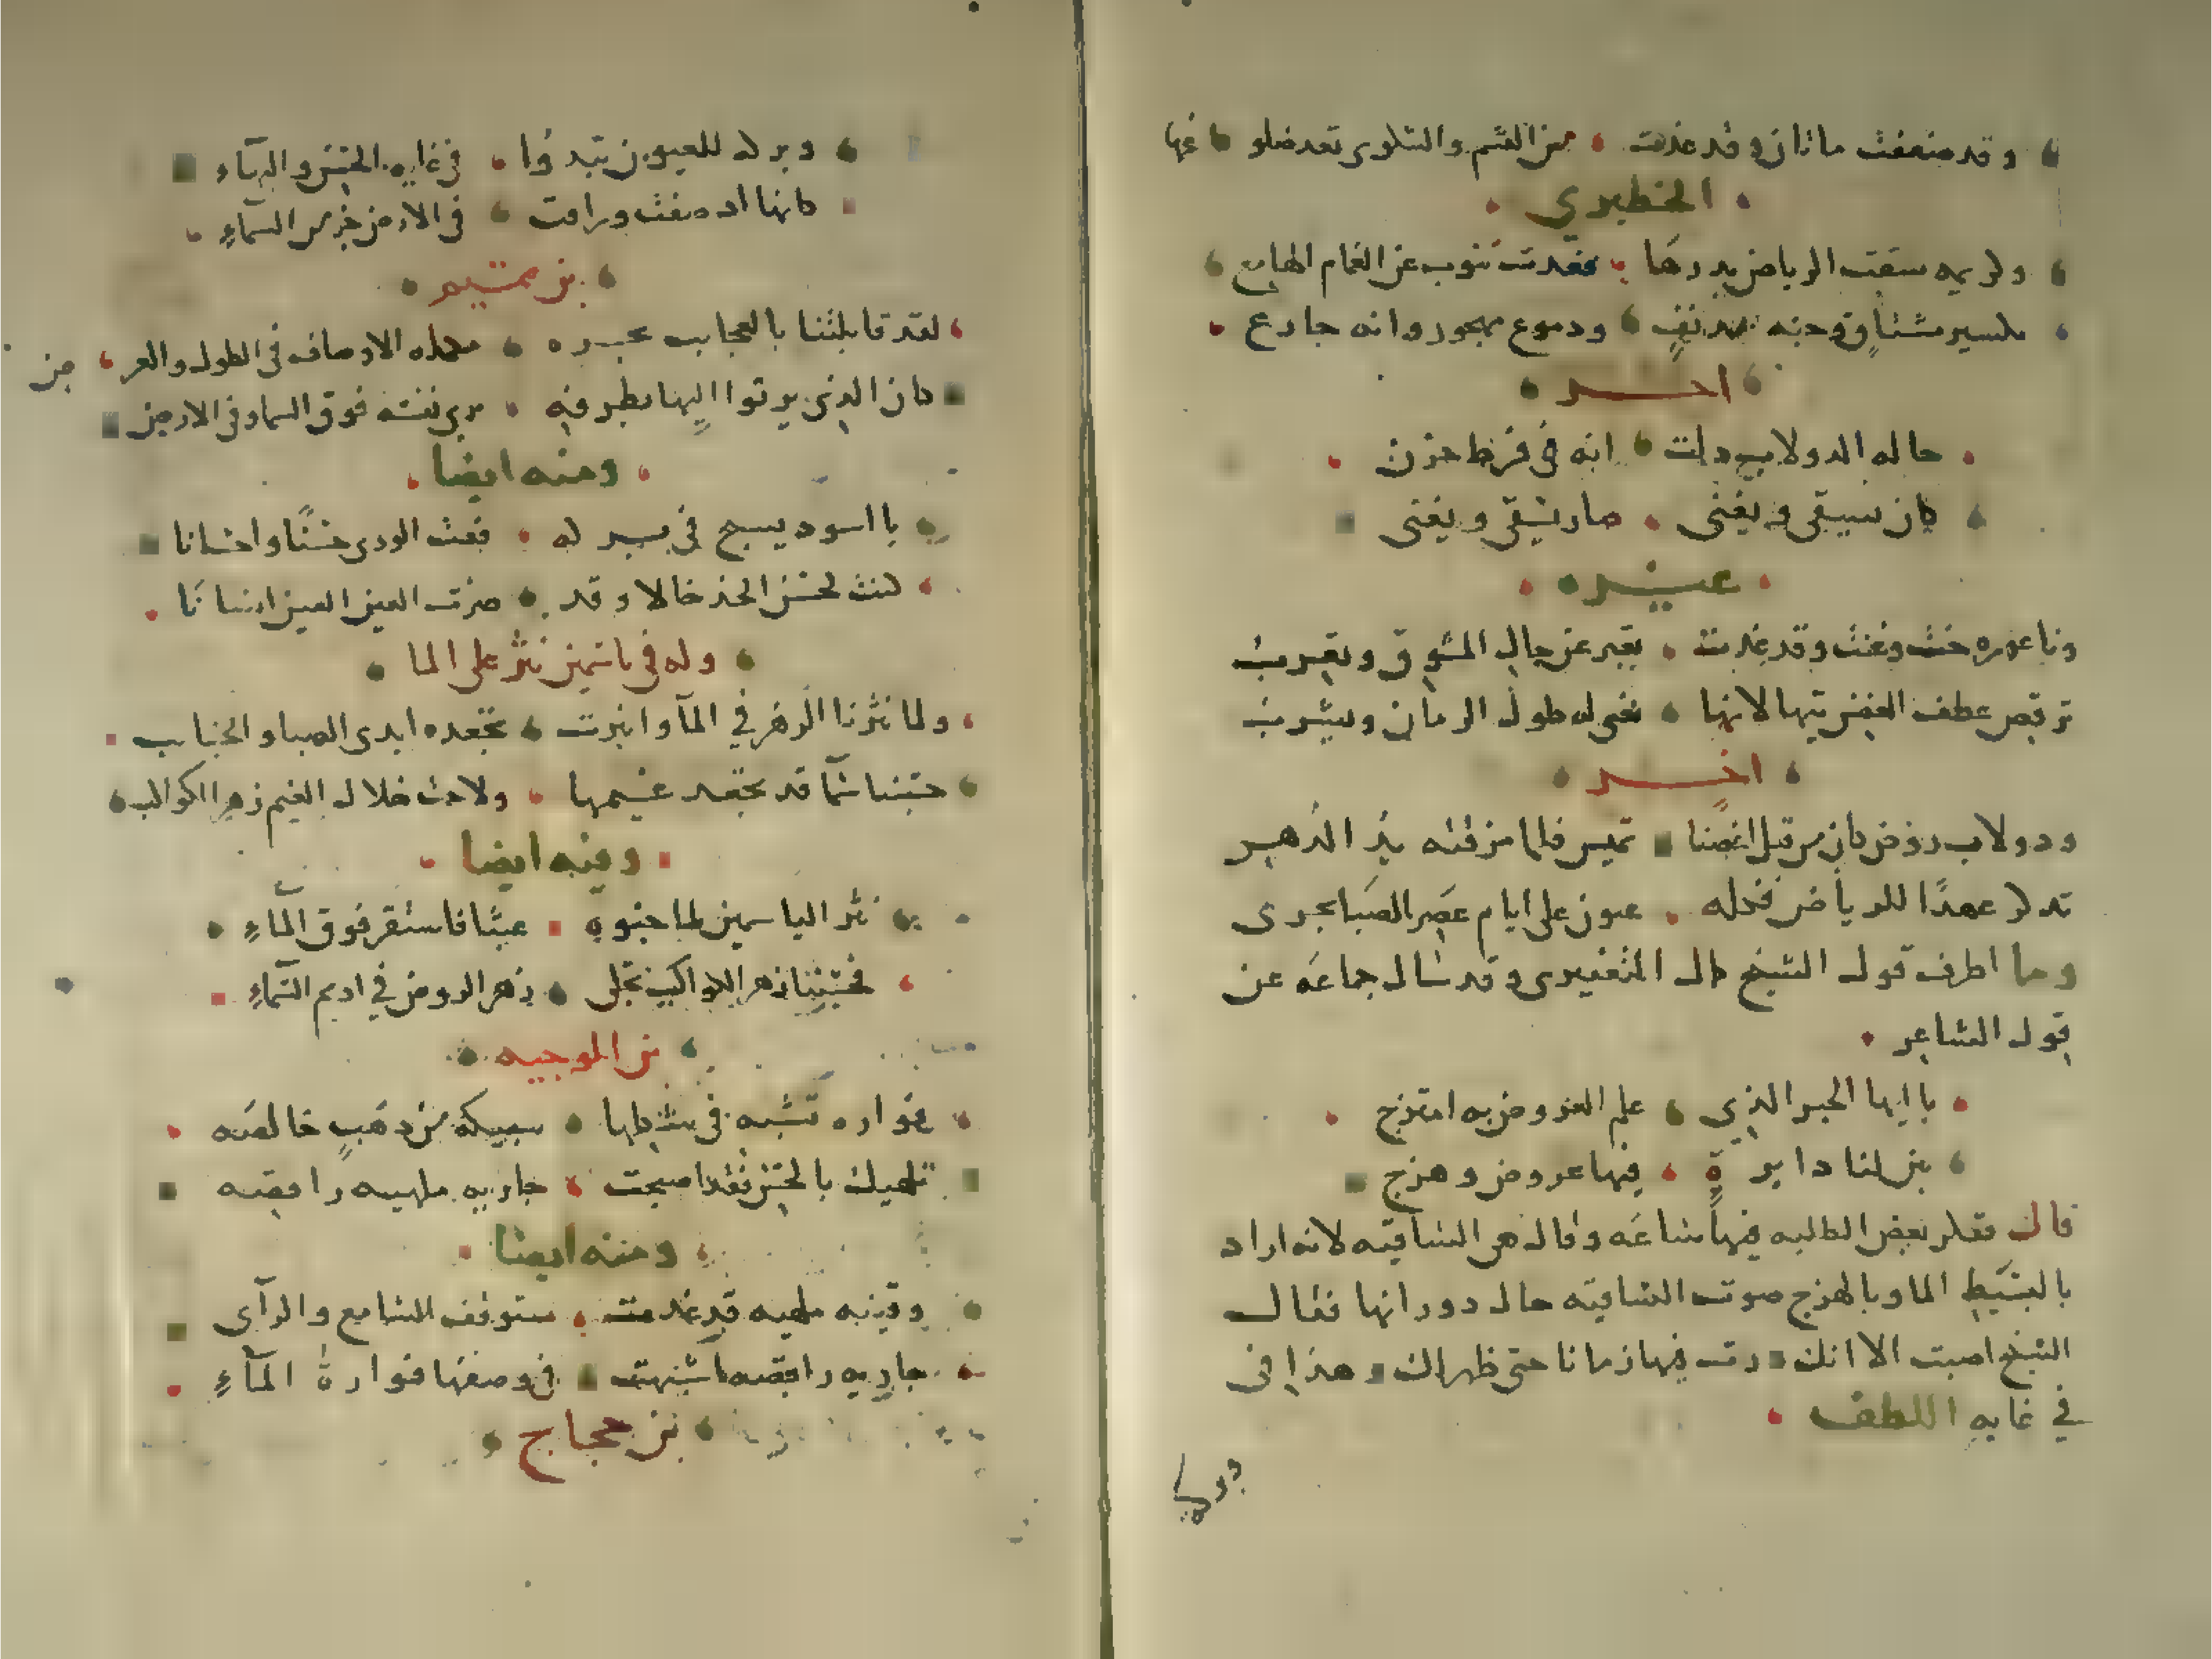 وقد ضعفت مما كان وقد عذت من السقم والشكوى تعد ضلوعها
الخطيري
وكريمه سقت الرياض بدرها فغدت تنوب عن الغمام الهامع
بمسير مشتاق وحنه مدنف ودموع مهجور وانه جازع
اخر
حاله الدولاب دلت انه في فرط حزن
كان يسقى ويغنى صار يسقي ويغنى
غيره
وناعوره حنت وغنت وقد غدت تعبر عن حال المشوق وتعرب
ترقص عطف الغصن تيها لانها تغني له طول الزمان ويشرب
اخر
ودولاب روض كان من قبل اغصنا تميس فلما مزقته يد الدهر
تذكر عهدا للرياض فكله عيون على ايام عصر الصبا تجرى
وما اظرف قول الشيخ وقد سال جماعه عن
قول الشاعر
يا ايها الحبر الذي علم العروض به امتزج
بين لنا دايرة فيها عروض وهزج
قال ففكر بعض الطلبه فيها ساعه وقال هى الساقيه لانه اراد
بالبسيط الما وبالهزج صوت الساقيه حال دورانها فقال
الشيخ اصبت الا انك درت فيها زمانا حتى ظهر لك وهذا فى
في غايه اللطف
وبركه
وبركه للعيون تبدوا في غايه الحسن والبهاء
كانها اذ صفت وراقت في الارض جزء من السماء
بن تميم
لقد قابلتنا بالعجايب بحيره مكمله الاوصاف في الطول والعرض
كان الذي يرنوا اليها بطرفه يرى نفسه فوق السما وفي الارض
ومنه ايضا
يا اسود يسبح في بركه فقت الورى حسنا واحسانا
كنت لحسن الخد خالا وقد صرت لعين العين انسانا
وله في ياسمين نثر على الما
ولما نثرنا الزهر في المآ وانبرت تجعده ايدى الصبا والجنايب
حسبنا سما قد تجعد غيمها ولاحت خلال الغيم زهر الكواكب
ومنه ايضا
نثر الياسمين لما جنوه عبثا فاستقر فوق المآء
فحسبنا زهر الكواكب تجلى زهر الروض في اديم السماء
بن الموجيه
فواره تشبه في شكلها سبيكه من ذهب خالصه
تلهيك بالحسن فقد اصبحت جاريه ملهيه راقصه
ومنه ايضا
وقينه ملهيه قد غدت تستوقف السامع والرآى
جاريه راقصه اشبهت في وصفها فوارة المآء
بن حجاج